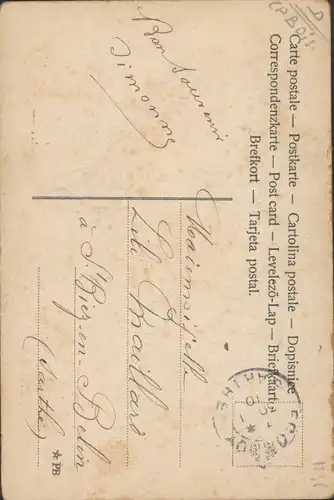 Carte postale — Postkarte — Cartolina postale — Dopisnice
Correspondenzkarte — Post card — Levelező-Lap — Briefkaart
Brefkort — Tarjeta postal.
Bon Souvenir
Simonne
Mademoiselle
Lili Maillard
à St Biez-en-Belin
(Sarthe)
PB